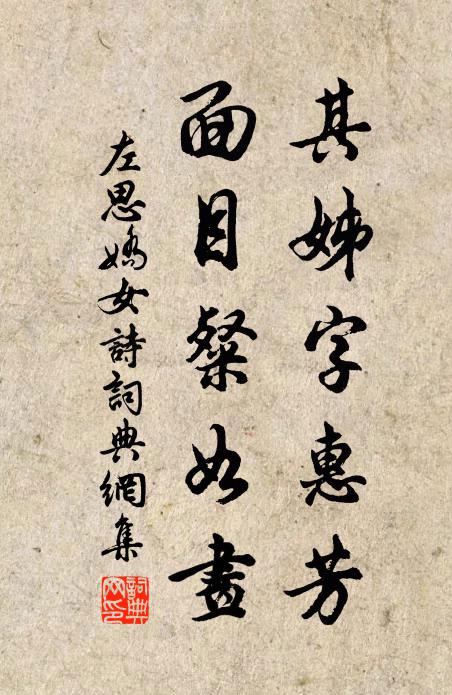 其姊字惠芳
面目粲如畫
左思嬌女詩詞典網集
詞典網印